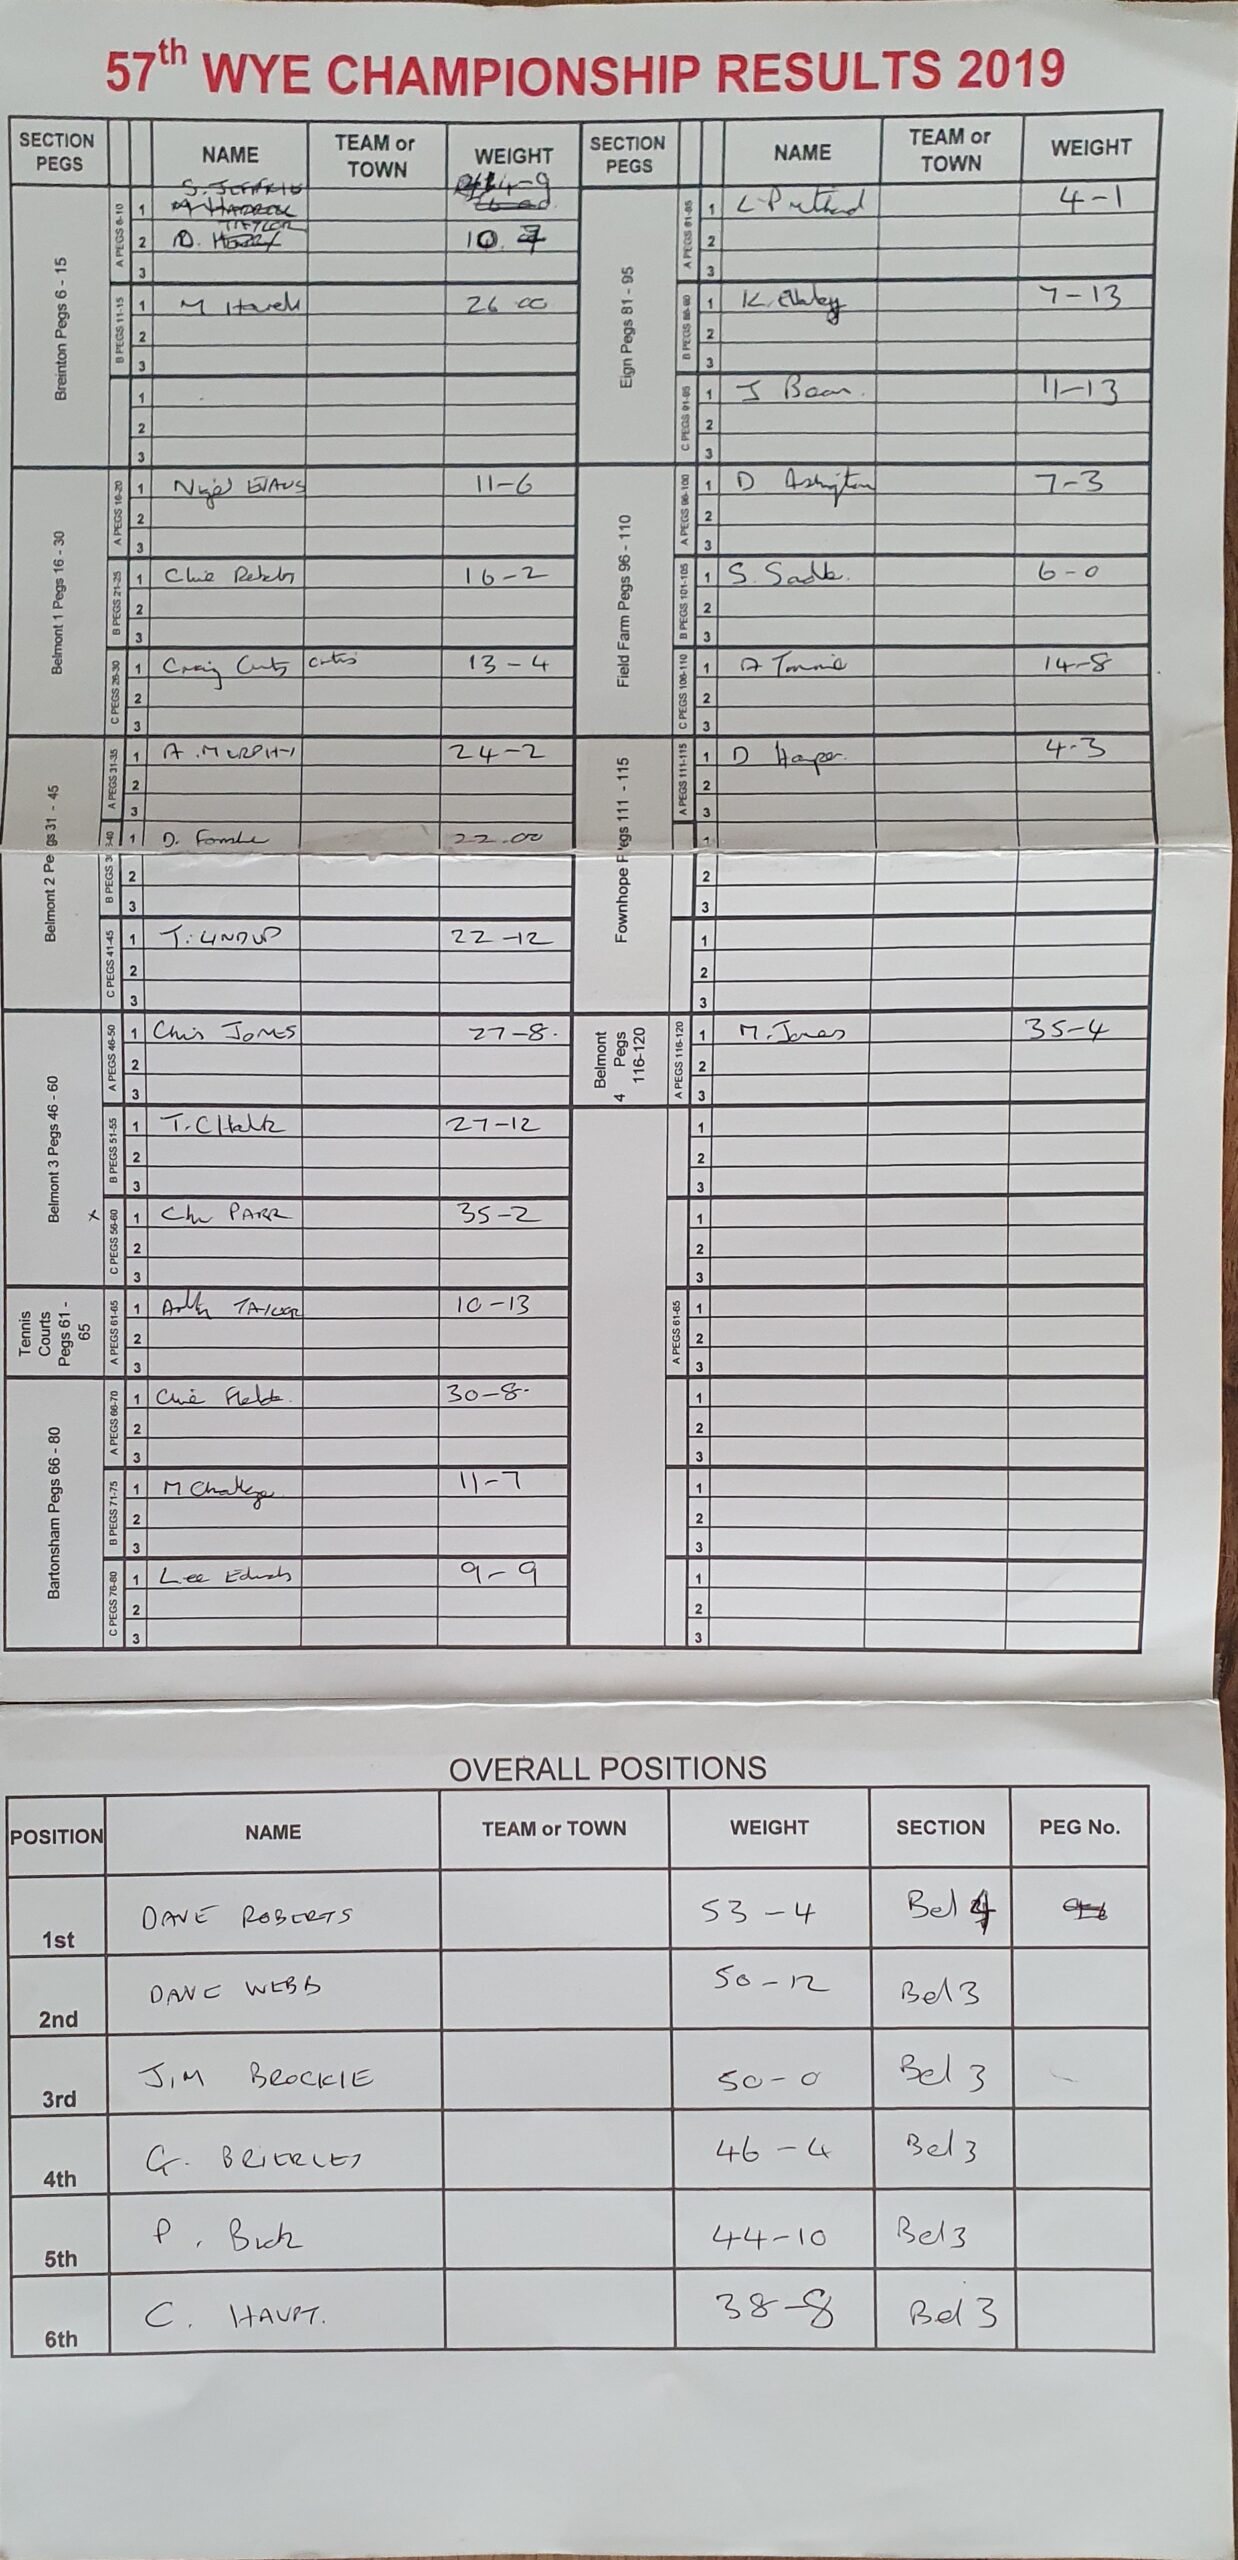 57th WYE CHAMPIONSHIP RESULTS 2019
SECTION PEGS NAME TEAM or TOWN WEIGHT SECTION PEGS NAME TEAM or TOWN WEIGHT
Breinton Pegs 6 - 15
A PEGS 6-10
1 14-9
TAYLOR
2 D. 10.
3
B PEGS 11-15
1 M 26 00
2
3
1
2
3
Belmont 1 Pegs 16 - 30
A PEGS 16-20
1 Nigel EVANS 11-6
2
3
B PEGS 21-25
1 16-2
2
3
C PEGS 26-30
1 Craig Curtis 13-4
2
3
Belmont 2 Pegs 31 - 45
A PEGS 31-35
1 A. MURPHY 24-2
2
3
B PEGS 3 -40
1 D. 22.00
2
3
C PEGS 41-45
1 T. LINDUP 22-12
2
3
Belmont 3 Pegs 46 - 60
A PEGS 46-50
1 Chris JONES 27-8.
2
3
B PEGS 51-55
1 T. 27-12
2
3
x
C PEGS 56-60
1 PARR 35-2
2
3
Tennis Courts Pegs 61 - 65
A PEGS 61-65
1 TAYLOR 10-13
2
3
Bartonsham Pegs 66 - 80
A PEGS 66-70
1 30-8.
2
3
B PEGS 71-75
1 M 11-7
2
3
C PEGS 76-80
1 Lee Edwards 9-9
2
3
Eign Pegs 81 - 95
A PEGS 81-85
1 4-1
2
3
B PEGS 86-90
1 K. 7-13
2
3
C PEGS 91-95
1 J 11-13
2
3
Field Farm Pegs 96 - 110
A PEGS 96-100
1 D Ashington 7-3
2
3
B PEGS 101-105
1 S. 6-0
2
3
C PEGS 106-110
1 A 14-8
2
3
Fownhope Pegs 111 - 115
A PEGS 111-115
1 D Harper. 4-3
2
3
1
2
3
1
2
3
Belmont 4 Pegs 116-120
A PEGS 116-120
1 M. Jones 35-4
2
3
1
2
3
1
2
3
A PEGS 61-65
1
2
3
1
2
3
1
2
3
1
2
3
OVERALL POSITIONS
POSITION NAME TEAM or TOWN WEIGHT SECTION PEG No.
1st DAVE ROBERTS 53-4 Bel 4
2nd DAVE WEBB 50-12 Bel 3
3rd JIM BROCKIE 50-0 Bel 3
4th G. BRIERLEY 46-4 Bel 3
5th P. 44-10 Bel 3
6th C. HAUPT. 38-8 Bel 3